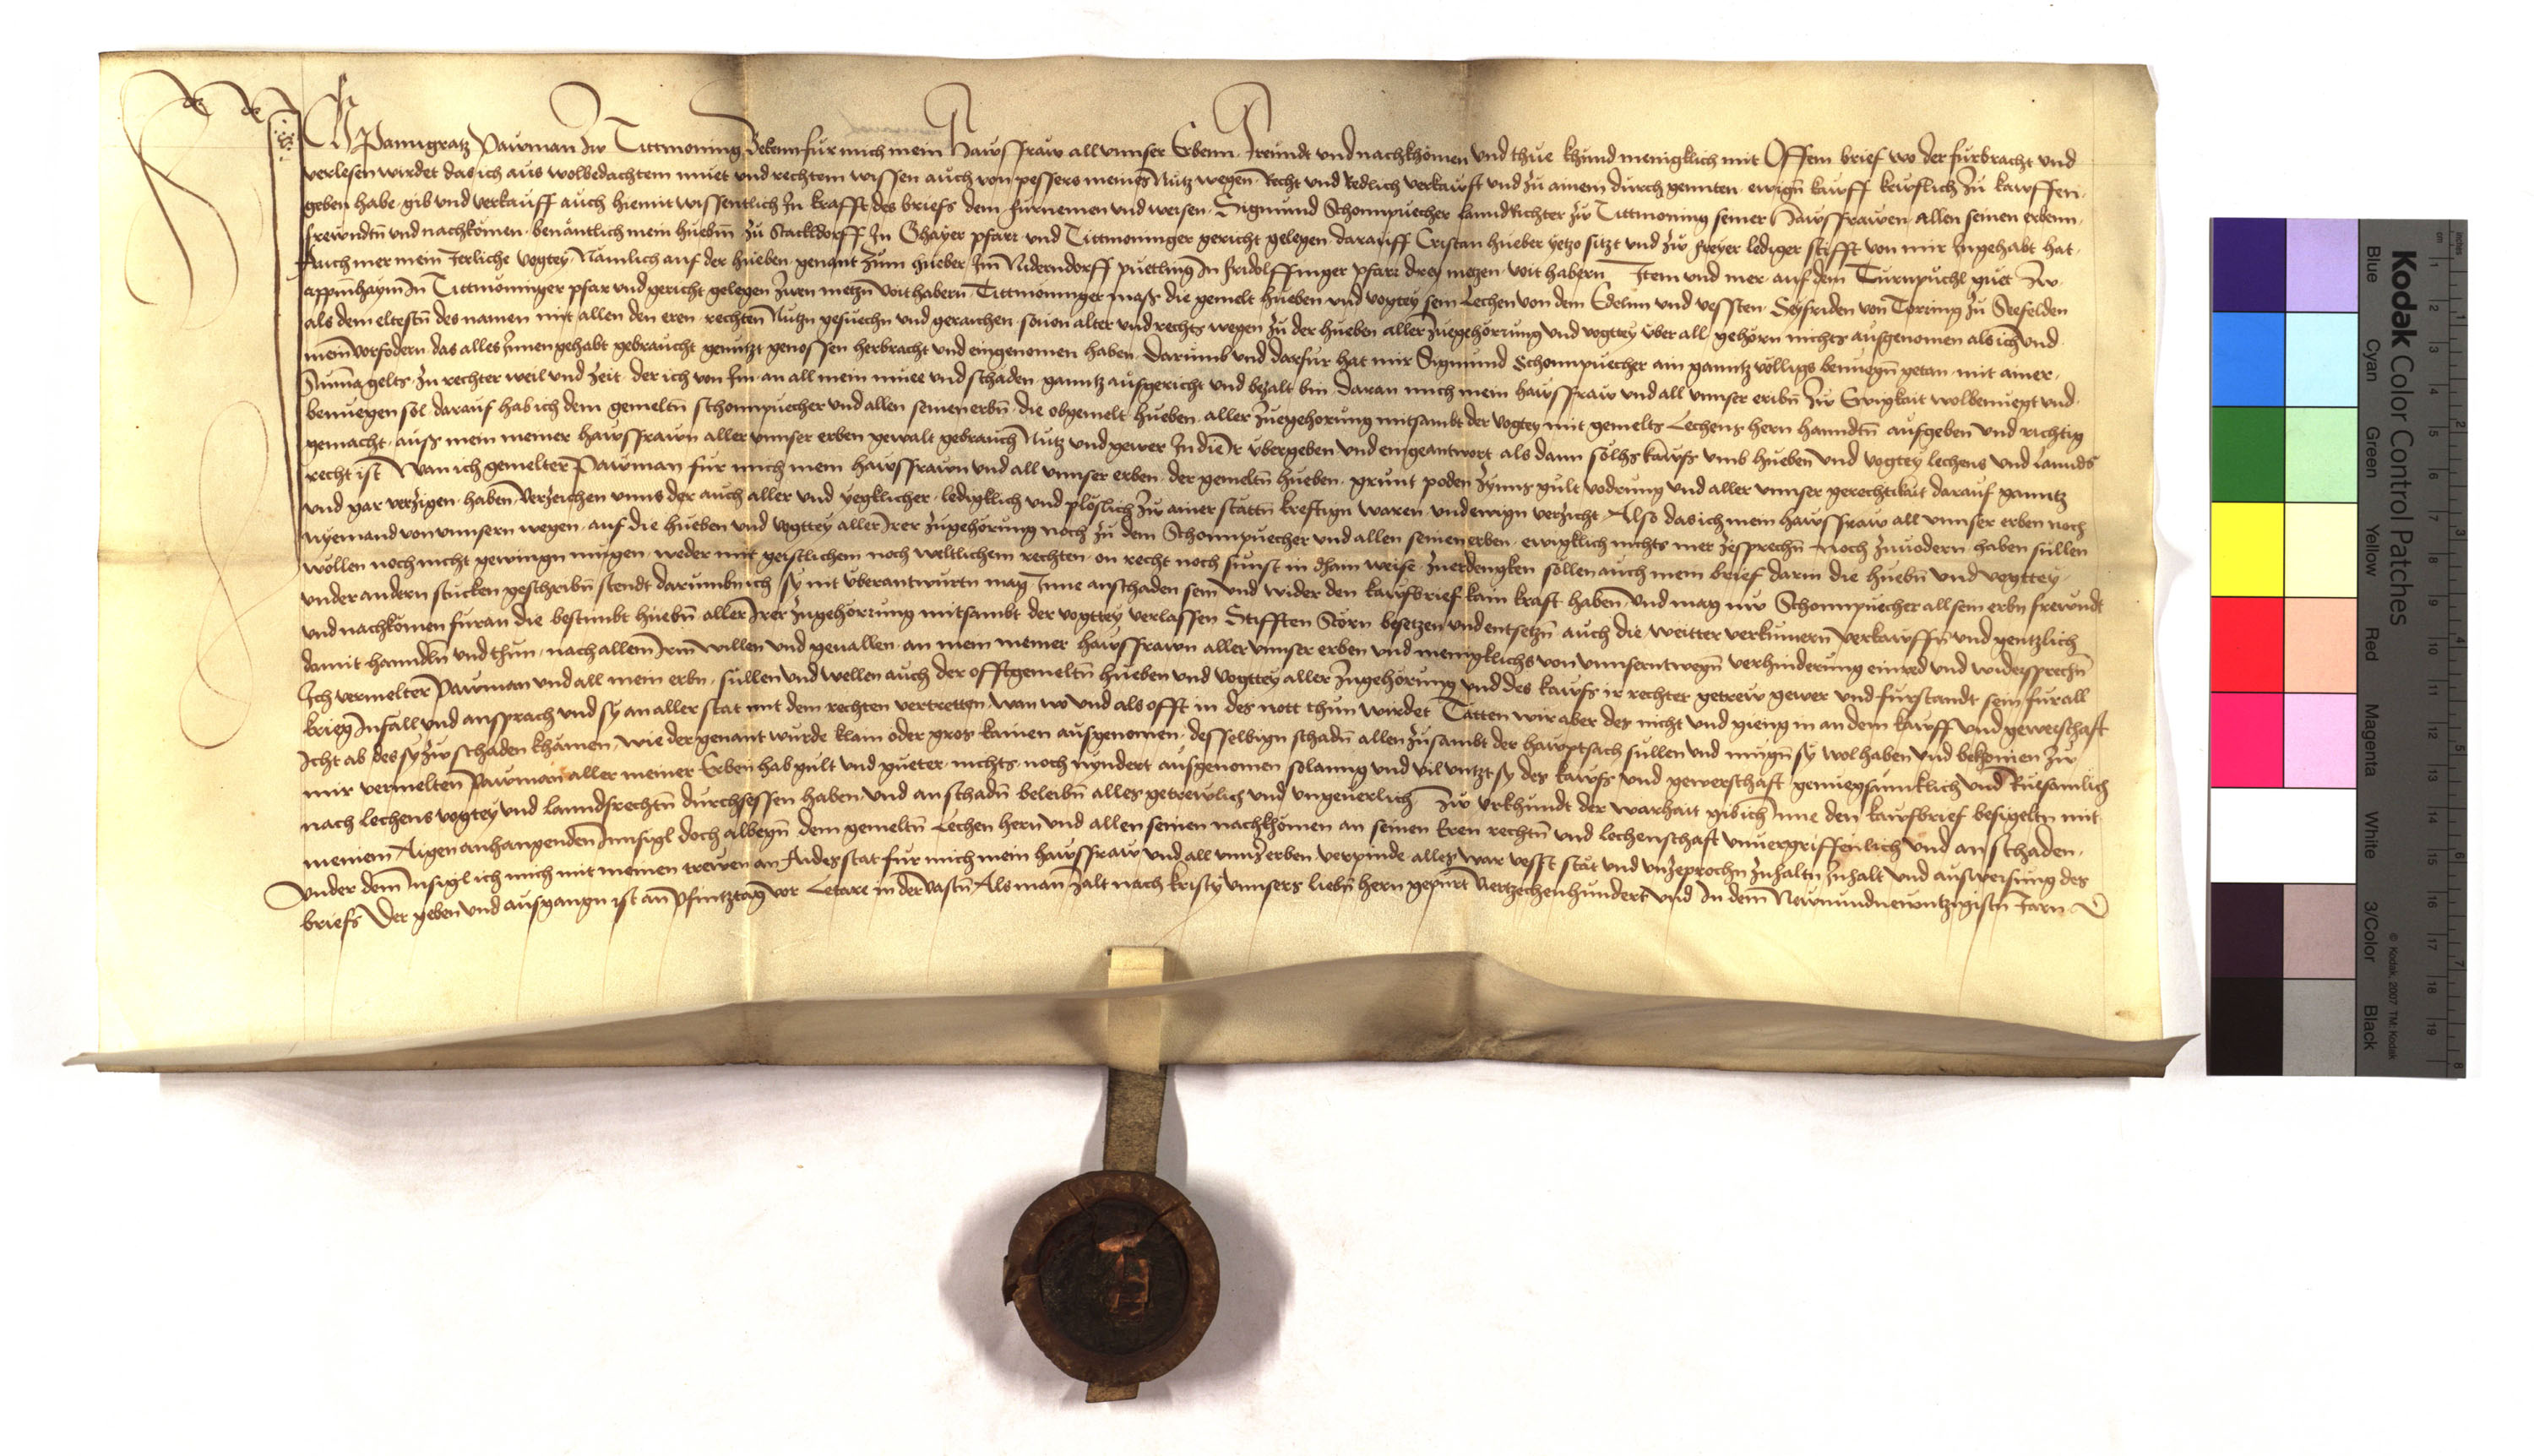 Ich Panngratz Pawman zw Tittmoning Bekenn fur mich mein Hawsfraw all vnnser Erbenn Freundt und nachkhömen und thue khund menigklich mit Offem brief wo der furbracht und
verlesen wirdet das ich aus wolbedachtem muet und rechtem wissen auch von pessers meines Nutz wegen Recht und Redlich verkawft und zu ainem durch gennten ewign kawff kewflich zu kawffen
geben habe gib und verkauff auch hiemit wissentlich In krafft des briefs dem furnemen und weisen Sigmund Schonnpuecher lanndRichter zw Tittmoning seiner Hawsfrawen allen seinen erbenn
frewndtn und nachkömen benäntlich mein huebm zu Stackldorff In Ghayer pfarr und Tittmoninger gericht gelegen darauff Cristan hueber yetzo sitzt und zw freyer lediger stifft von mir Inngehabt hat
Auch mer mein Jerliche vogtey Nämlich auf der hueben genant zum hueber Im Niderndorff puetling In Fridolffinger pfarr drey metzen voit habern Item und mer auf dem Turnpuchl guet zw
appinhaym In Tittmoninger pfar und gericht gelegen zwen metzn voit habern Tittmoninger mass die gemelt hueben und vogtey sein Lechen von dem Edelnn und vessten Seyfriden von Törring zu Seefelden
als dem eltestn des namen mit allen den eren rechten Nutzn gesuechn und geraichen souon alter und rechts wegen zu der hueben aller zuegehörung und vogttey über all gehörn nichts ausgenomen als ich und
mein vorfodern das alles Innen gehabt gebraucht genutzt genossen herbracht und eingenomen haben Darumb und darfur hat mir Sigmund Schonnpuecher ain ganntz völligs benuegn getan mit ainer
Summa gelts zu rechter weil und zeit der ich von Im an all mein muee und schaden ganntz ausgericht und bezalt bin daran mich mein hawsfraw und all vnnser eribn zw Ewigkait wolbenuegt und
benuegen sol darauf hab ich dem gemeltn schonnpuecher und allen seinen erbn die obgemelt hueben aller zuegehorung mitsambt der vogtey mit gemelts Lechens hern hanndtn aufgeben und richtig
gemacht auss mein meiner hawsfrawn aller vnnser erben gewalt gebrauch Nutz und gewer In die Ir übergeben und eingeantwort als dann solhs kawfs umb hueben und vogtey lechens und lannds
recht ist Wan ich gemelter Pawman fur mich mein hawsfrawn und all vnnser erben der gemeltn hueben grunt poden zynns gult vodrung und aller vnnser gerechtikait darauf ganntz
und gar verzigen haben verzeichen vnns der auch aller und yegklicher ledigklich und ploslich zw ainer stattn kreftign waren und ewign verzicht Also das ich mein hawsfraw all vnnser erben noch
nyemand von vnnsern wegen auf die hueben und vogttey aller Irer zugehörung noch zu dem Schonnpuecher und allen seinen erben ewigklich nichts mer zesprechn noch zuuodern haben sullen
wöllen noch nicht gewingn mügen weder mit geistlichem noch weltlichem rechten on recht noch sunst in khain weise zuerdengken söllen auch mein brief darin die huebn und vogttey
under andern stucken geschribn stendt darumb ich sy nit überantwurtn mag Inne anschaden sein und wider den kawfbrief kain kraft haben Und mag nw Schonnpuecher all sein erbn frewndt
und nachkömen furan die bestimbt huebn aller Irer zugehörrung mitsambt der vogttey verlassen Stifften Störn besetzen und entsetzn auch die weitter verkumern verkawffn und genntzlich
damit hanndln und thun nach allem Irm willen und geuallen an mein meiner hawsfrawn aller vnnser erben und menigklichs von vnnserntwegn verhinderung einred und widersprechn
Ich vermelter Pawman und all mein erbn sullen und wellen auch der offtgemeltn hueben und vogttey aller zugehörung und des kawfs ir rechter getrew gewer und furstandt sein fur all
krieg Infall und ansprach und sy an aller stat mit dem rechten vertretten wan wo und als offt in des nott thun wirdet Tätten wir aber des nicht und gieng in an dem kawff und gewerschaft
Icht ab des sy zw schaden khämen wie der genant wurde klain oder gros kainen ausgenomen desselbign schadn allen zusambt der hauptsach sullen und mugn sy wol haben und bekomen zw
mir vermelten Pawman aller meiner Erben hab gult und gueter nichts noch nyndert ausgenomen solanng und vil vntzt sy des kawfs und gewerschaft genuegsamklich und Ruesamlich
nach lechens vogtey und lanndsrechtn durchsessen haben und an schadn beleibn alles getrewlich und ungeuerlich Zw Urkhundt der warhait gib ich Inne den kawfbrief besigelten mit
meinem Aigen anhanngenden Innsigl doch albegn dem gemeltn Lechen hern und allen seinen nachkhömen an seinen Eren rechtn und lechenschaft unuergriffenlich und an schaden
Under dem Insigl ich mich mit meinen trewen an Aides stat fur mich mein hawsfraw und all vnns erben verpinde alles war vesst stät und unzeprochn zuhaltn Inhalt und ausweisung des
briefs Der geben und ausgangn ist am Pfintztag vor Letare in der vastn Als man zalt nach kristy vnnsers liebn hern gepurt Viertzechenhundert und In dem Newnundnewntzigistn Jarn